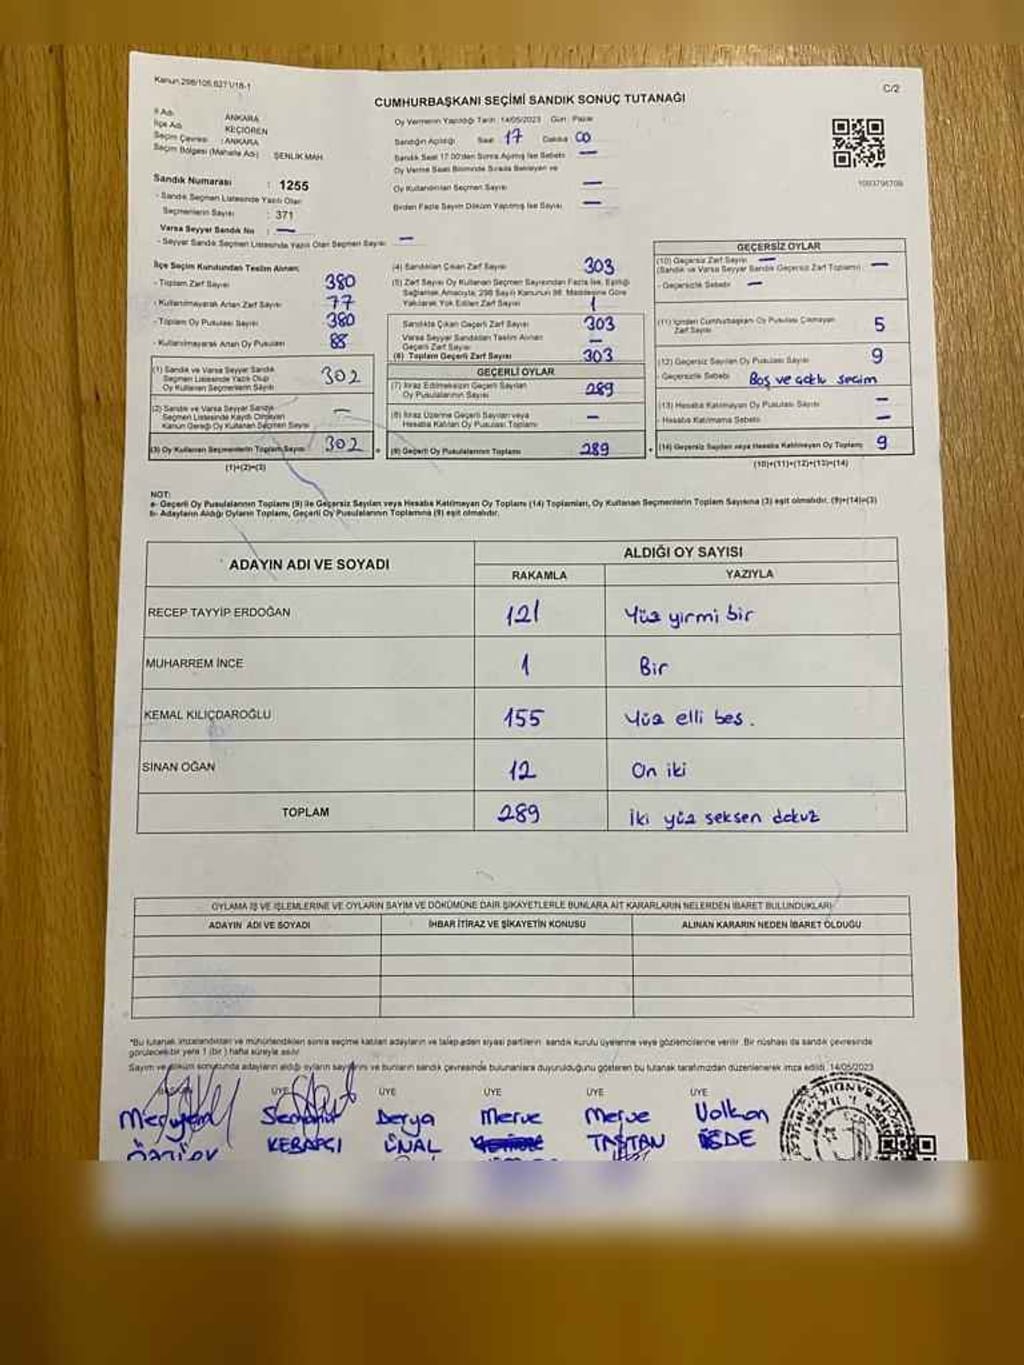 Kanun 298/105,6271/18-1
C/2
CUMHURBAŞKANI SEÇİMİ SANDIK SONUÇ TUTANAĞI
İl Adı ANKARA
İlçe Adı KEÇİÖREN
Seçim Çevresi : ANKARA
Seçim Bölgesi (Mahalle Adı) ŞENLİK MAH.
Sandık Numarası : 1255
- Sandık Seçmen Listesinde Yazılı Olan
Seçmenlerin Sayısı : 371
Varsa Seyyar Sandık No : —
- Seyyar Sandık Seçmen Listesinde Yazılı Olan Seçmen Sayısı —
Oy Vermenin Yapıldığı Tarih 14/05/2023 Gün Pazar
Sandığın Açıldığı Saat 17 Dakika 00
Sandık Saat 17.00'den Sonra Açılmış İse Sebebi —
Oy Verme Saati Bitiminde Sırada Bekleyen ve
Oy Kullandırılan Seçmen Sayısı —
Birden Fazla Sayım Döküm Yapılmış İse Sayısı —
1093796709
İlçe Seçim Kurulundan Teslim Alınan
- Toplam Zarf Sayısı 380
- Kullanılmayarak Artan Zarf Sayısı 77
- Toplam Oy Pusulası Sayısı 380
- Kullanılmayarak Artan Oy Pusulası 88
(1) Sandık ve Varsa Seyyar Sandık
Seçmen Listesinde Yazılı Olup
Oy Kullanan Seçmenlerin Sayısı 302
(2) Sandık ve Varsa Seyyar Sandık
Seçmen Listesinde Kaydı Olmayan
Kanun Gereği Oy Kullanan Seçmen Sayısı —
(3) Oy Kullanan Seçmenlerin Toplam Sayısı 302
(1)+(2)=(3)
(4) Sandıktan Çıkan Zarf Sayısı 303
(5) Zarf Sayısı Oy Kullanan Seçmen Sayısından Fazla İse, Eşitliği
Sağlamak Amacıyla, 298 Sayılı Kanunun 98. Maddesine Göre
Yakılarak Yok Edilen Zarf Sayısı 1
Sandıkta Çıkan Geçerli Zarf Sayısı 303
Varsa Seyyar Sandıktan Teslim Alınan
Geçerli Zarf Sayısı —
(6) Toplam Geçerli Zarf Sayısı 303
GEÇERLİ OYLAR
(7) İtiraz Edilmeksizin Geçerli Sayılan
Oy Pusulalarının Sayısı 289
(8) İtiraz Üzerine Geçerli Sayılan veya
Hesaba Katılan Oy Pusulası Toplamı —
(9) Geçerli Oy Pusulalarının Toplamı 289
GEÇERSİZ OYLAR
(10) Geçersiz Zarf Sayısı —
(Sandık ve Varsa Seyyar Sandık Geçersiz Zarf Toplamı) —
- Geçersizlik Sebebi —
(11) İçinden Cumhurbaşkanı Oy Pusulası Çıkmayan
Zarf Sayısı 5
(12) Geçersiz Sayılan Oy Pusulası Sayısı 9
- Geçersizlik Sebebi Boş ve çoklu seçim
(13) Hesaba Katılmayan Oy Pusulası Sayısı —
- Hesaba Katılmama Sebebi —
(14) Geçersiz Sayılan veya Hesaba Katılmayan Oy Toplamı 9
(10)+(11)+(12)+(13)=(14)
NOT:
a- Geçerli Oy Pusulalarının Toplamı (9) ile Geçersiz Sayılan veya Hesaba Katılmayan Oy Toplamı (14) Toplamları, Oy Kullanan Seçmenlerin Toplam Sayısına (3) eşit olmalıdır. (9)+(14)=(3)
b- Adayların Aldığı Oyların Toplamı, Geçerli Oy Pusulalarının Toplamına (9) eşit olmalıdır.
ADAYIN ADI VE SOYADI ALDIĞI OY SAYISI
RAKAMLA YAZIYLA
RECEP TAYYİP ERDOĞAN 121 Yüz yirmi bir
MUHARREM İNCE 1 Bir
KEMAL KILIÇDAROĞLU 155 Yüz elli beş.
SİNAN OĞAN 12 On iki
TOPLAM 289 İki yüz seksen dokuz
OYLAMA İŞ VE İŞLEMLERİNE VE OYLARIN SAYIM VE DÖKÜMÜNE DAİR ŞİKAYETLERLE BUNLARA AİT KARARLARIN NELERDEN İBARET BULUNDUKLARI
ADAYIN ADI VE SOYADI İHBAR İTİRAZ VE ŞİKAYETİN KONUSU ALINAN KARARIN NEDEN İBARET OLDUĞU
*Bu tutanak imzalandıktan ve mühürlendikten sonra seçime katılan adayların ve talep eden siyasi partilerin sandık kurulu üyelerine veya gözlemcilerine verilir. Bir nüshası da sandık çevresinde
görülecek bir yere 1 (bir) hafta süreyle asılır.
Sayım ve döküm sonucunda adayların aldığı oyların sayılarını ve bunların sandık çevresinde bulunanlara duyurulduğunu gösteren bu tutanak tarafımızdan düzenlenerek imza edildi. 14/05/2023
ÜYE ÜYE ÜYE ÜYE ÜYE
Derya Merve Merve Volkan
KEBAPÇI ÜNAL TAŞTAN DEDE